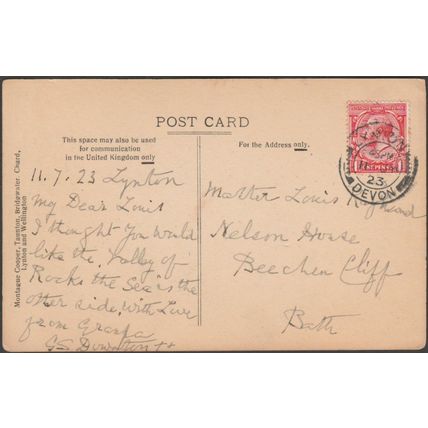 POST CARD
This space may also be used
for communication
in the United Kingdom only
For the Address only.
Montague Cooper, Taunton, Bridgwater, Chard,
Lynton and Wellington
11.7.23 Lynton
My Dear Louis
I thought you would
like the Valley of
Rocks the Sea is the
other side, with Love
from Grandpa
GS
Master Louis
Nelson House
Beechen Cliff
Bath
LYNTON
23
DEVON
ONE PENNY